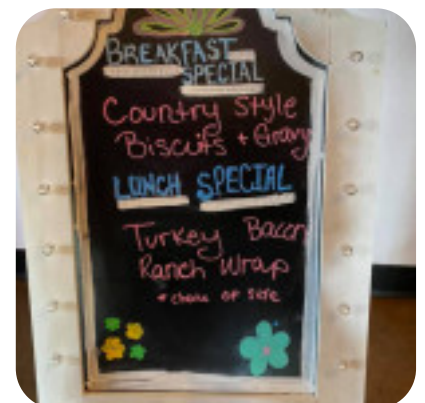 BREAKFAST
SPECIAL
Country Style
Biscuits + Gravy
LUNCH SPECIAL
Turkey Bacon
Ranch Wrap
+ choice of side